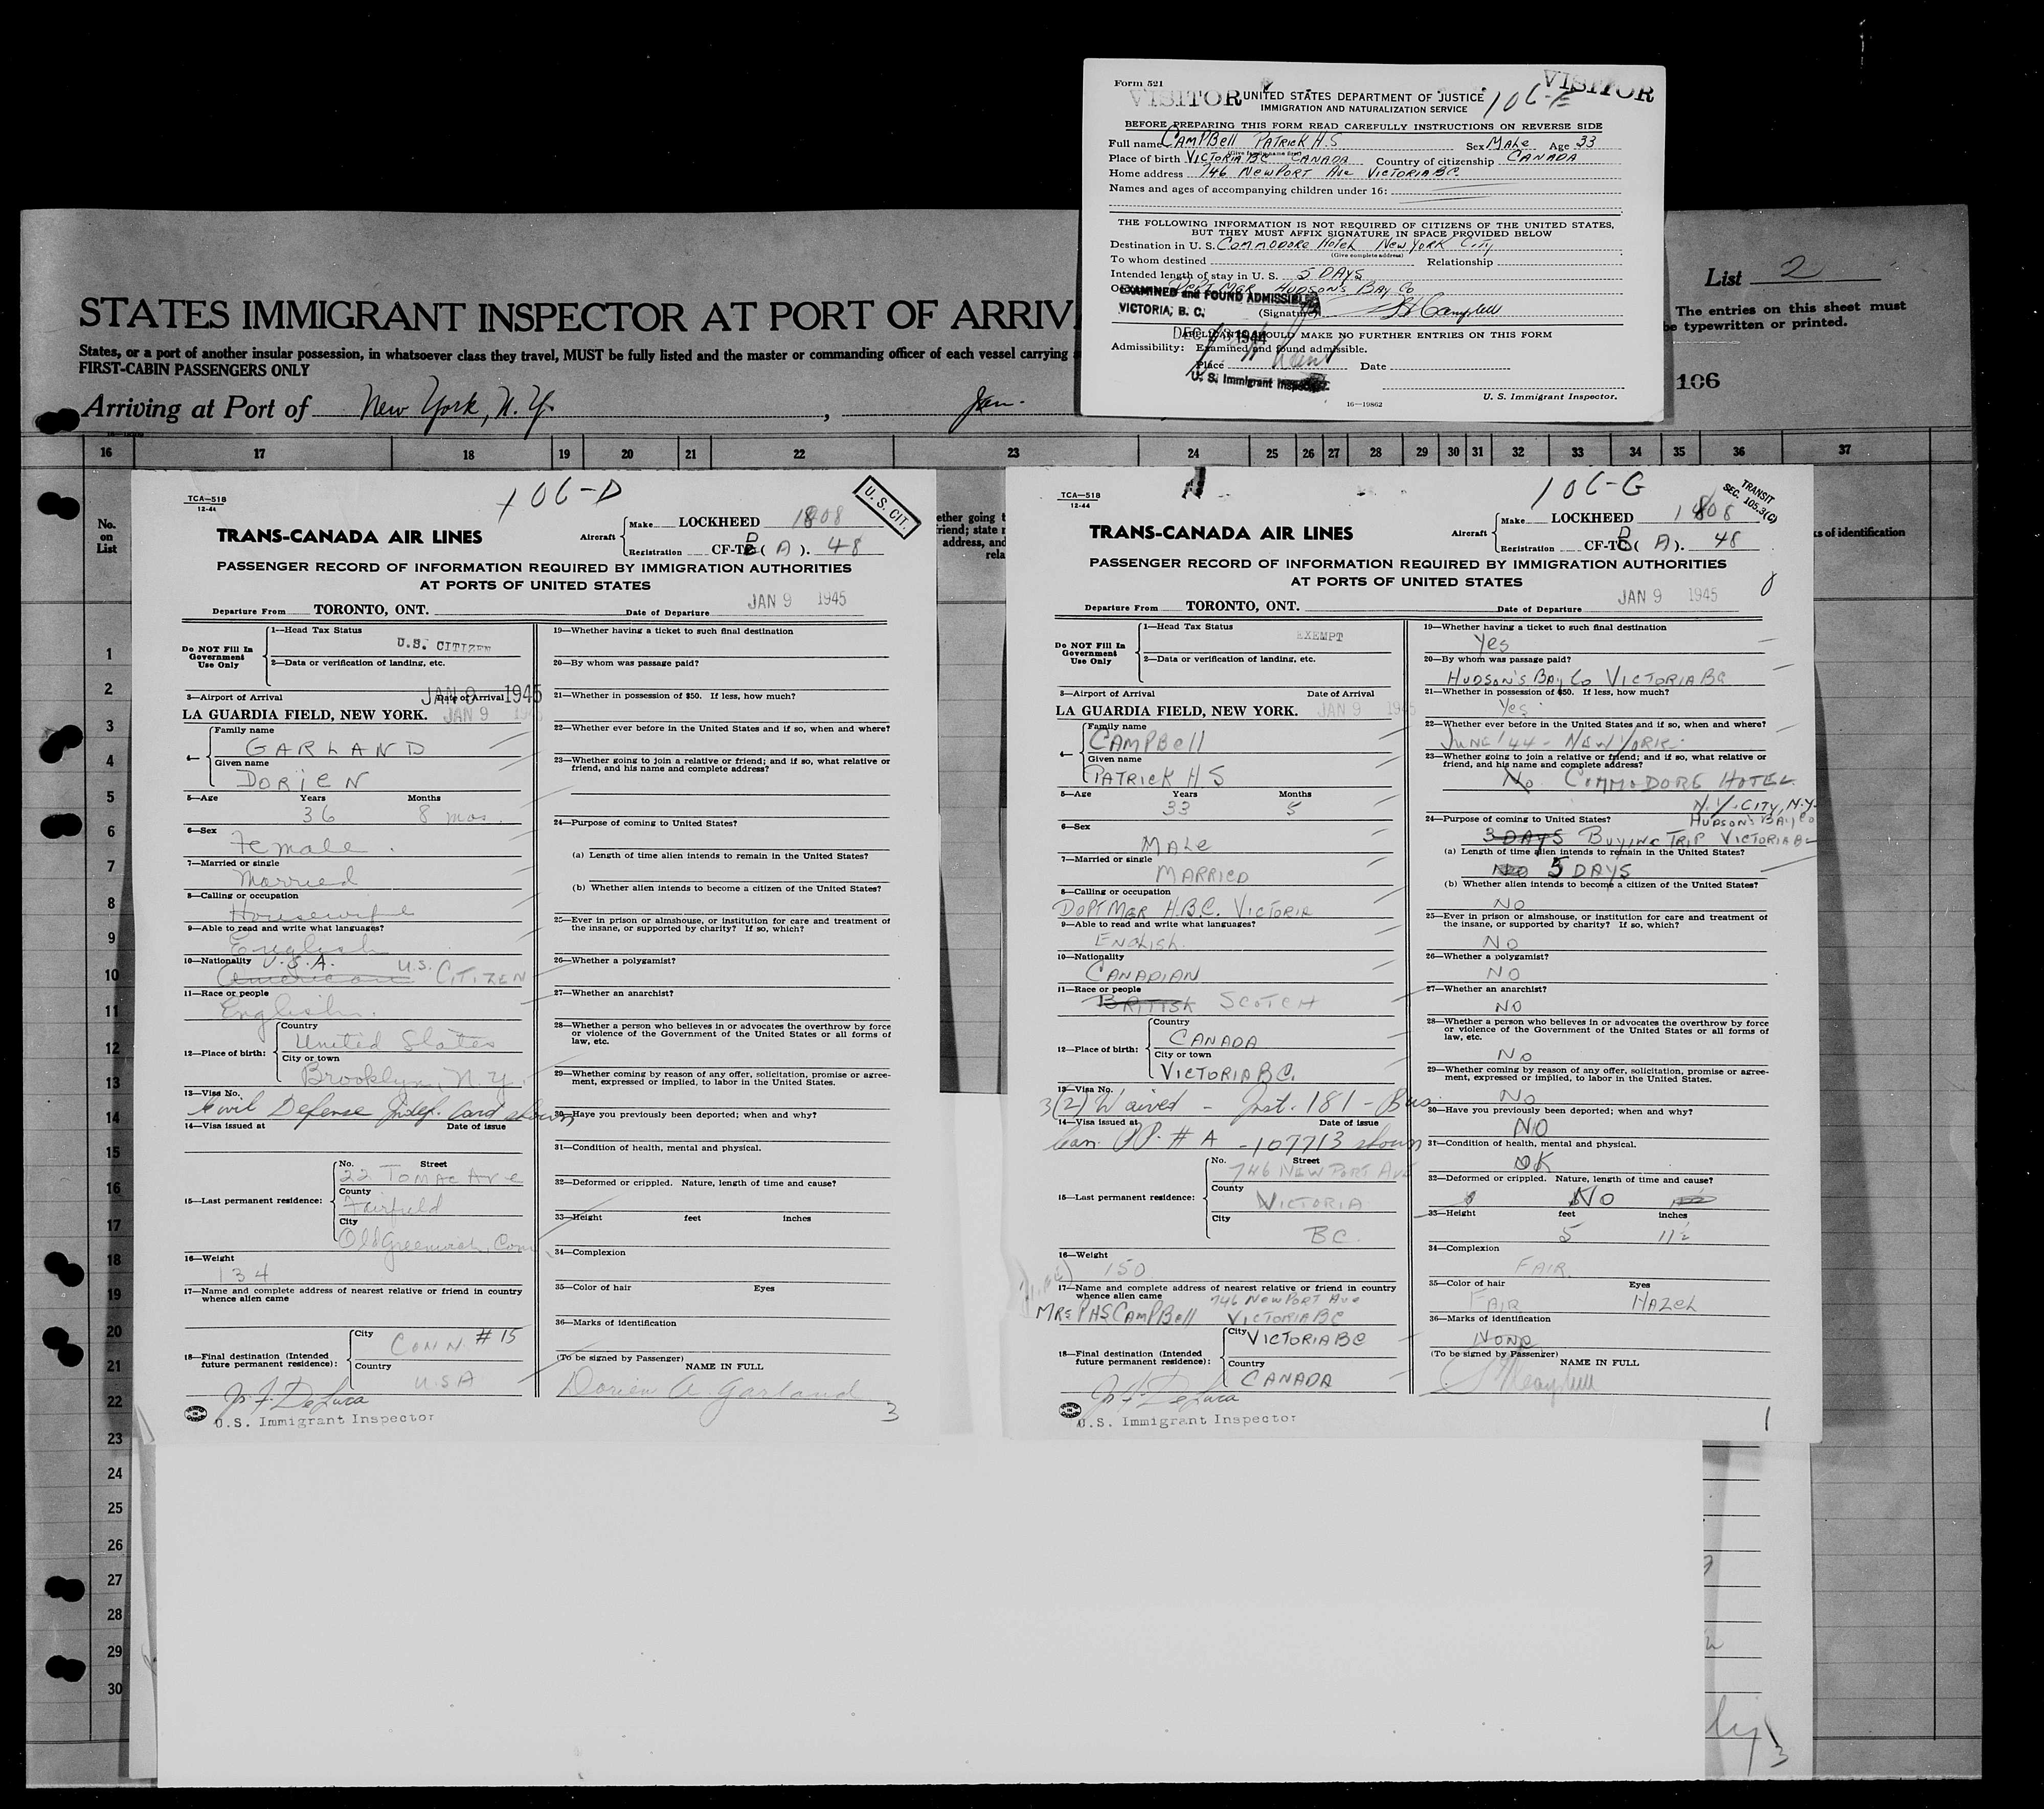 Form 521
VISITOR VISITOR
UNITED STATES DEPARTMENT OF JUSTICE 106-E
IMMIGRATION AND NATURALIZATION SERVICE
BEFORE PREPARING THIS FORM READ CAREFULLY INSTRUCTIONS ON REVERSE SIDE
Full name CAMPBell PATRICK H.S Sex MALe Age 33
(Give family name first)
Place of birth VICTORIA BC CANADA Country of citizenship CANADA
Home address 746 NewPORT Ave VICTORIA BC.
Names and ages of accompanying children under 16:
THE FOLLOWING INFORMATION IS NOT REQUIRED OF CITIZENS OF THE UNITED STATES,
BUT THEY MUST AFFIX SIGNATURE IN SPACE PROVIDED BELOW
Destination in U. S. Commodore Hotel New York City
(Give complete address)
To whom destined Relationship
Intended length of stay in U. S. 5 DAYS
DEPT MGR HUDSON'S BAY Co
EXAMINED and FOUND ADMISSIBLE
VICTORIA, B. C. (Signature) Campbell
DEC 1944
APPLICANT SHOULD MAKE NO FURTHER ENTRIES ON THIS FORM
Admissibility: Examined and found admissible.
Place Date
U. S. Immigrant Inspector.
U. S. Immigrant Inspector.
16—19862
List 2
STATES IMMIGRANT INSPECTOR AT PORT OF ARRIV
The entries on this sheet must
be typewritten or printed.
States, or a port of another insular possession, in whatsoever class they travel, MUST be fully listed and the master or commanding officer of each vessel carrying
FIRST-CABIN PASSENGERS ONLY
106
Arriving at Port of New York, N.Y. , Jan.
16 17 18 19 20 21 22 23 24 25 26 27 28 29 30 31 32 33 34 35 36 37
No.
on
List
ether going t
riend; state
address, and
rela
s of identification
1
2
3
4
5
6
7
8
9
10
11
12
13
14
15
16
17
18
19
20
21
22
23
24
25
26
27
28
29
30
TCA—518
12-44
106-D
U. S. CIT.
TRANS-CANADA AIR LINES
Aircraft Make LOCKHEED 1808
Registration CF-TC (A). 48
PASSENGER RECORD OF INFORMATION REQUIRED BY IMMIGRATION AUTHORITIES
AT PORTS OF UNITED STATES
Departure From TORONTO, ONT. Date of Departure JAN 9 1945
Do NOT Fill In
Government
Use Only
1—Head Tax Status U.S. CITIZEN
2—Data or verification of landing, etc.
3—Airport of Arrival Date of Arrival JAN 9 1945
LA GUARDIA FIELD, NEW YORK. JAN 9 1945
4— Family name
GARLAND
Given name
DORIEN
5—Age Years Months
36 8 mos.
6—Sex
Female.
7—Married or single
Married
8—Calling or occupation
Housewife
9—Able to read and write what languages?
English
10—Nationality U.S.A. U.S. CITIZEN
American
11—Race or people
English.
12—Place of birth: Country
United States
City or town
Brooklyn, N.Y.
13—Visa No.
Civil Defense Indef. Card shown
14—Visa issued at Date of issue
15—Last permanent residence: No. Street
22 TOMAC Ave
County
Fairfield
City
Old Greenwich, Conn
16—Weight
134
17—Name and complete address of nearest relative or friend in country
whence alien came
18—Final destination (Intended
future permanent residence): City
CONN. #15
Country
USA
Js. F. DeLuca
U.S. Immigrant Inspector
19—Whether having a ticket to such final destination
20—By whom was passage paid?
21—Whether in possession of $50. If less, how much?
22—Whether ever before in the United States and if so, when and where?
23—Whether going to join a relative or friend; and if so, what relative or
friend, and his name and complete address?
24—Purpose of coming to United States?
(a) Length of time alien intends to remain in the United States?
(b) Whether alien intends to become a citizen of the United States?
25—Ever in prison or almshouse, or institution for care and treatment of
the insane, or supported by charity? If so, which?
26—Whether a polygamist?
27—Whether an anarchist?
28—Whether a person who believes in or advocates the overthrow by force
or violence of the Government of the United States or all forms of
law, etc.
29—Whether coming by reason of any offer, solicitation, promise or agree-
ment, expressed or implied, to labor in the United States.
30—Have you previously been deported; when and why?
31—Condition of health, mental and physical.
32—Deformed or crippled. Nature, length of time and cause?
33—Height feet inches
34—Complexion
35—Color of hair Eyes
36—Marks of identification
(To be signed by Passenger) NAME IN FULL
Dorien A. Garland
3
TCA—518
12-44
106-G
TRANSIT
SEC. 105.3(C)
TRANS-CANADA AIR LINES
Aircraft Make LOCKHEED 1808
Registration CF-TC (A). 48
PASSENGER RECORD OF INFORMATION REQUIRED BY IMMIGRATION AUTHORITIES
AT PORTS OF UNITED STATES
Departure From TORONTO, ONT. Date of Departure JAN 9 1945
Do NOT Fill In
Government
Use Only
1—Head Tax Status EXEMPT
2—Data or verification of landing, etc.
3—Airport of Arrival Date of Arrival
LA GUARDIA FIELD, NEW YORK. JAN 9 1945
4— Family name
CAMPBell
Given name
PATRICK H.S
5—Age Years Months
33 5
6—Sex
MALe
7—Married or single
MARRIED
8—Calling or occupation
DEPT MGR H.B.C. VICTORIA
9—Able to read and write what languages?
ENGLISH.
10—Nationality
CANADIAN
11—Race or people
BRITISH SCOTCH
12—Place of birth: Country
CANADA
City or town
VICTORIA B.C.
13—Visa No.
3(2) Waived - Inst. 181 - Bus.
14—Visa issued at Date of issue
Can. P.P. # A-107713 shown
15—Last permanent residence: No. Street
746 NEWPORT AVE
County
VICTORIA
City
BC.
16—Weight
150
17—Name and complete address of nearest relative or friend in country
whence alien came 746 NewPORT Ave
MRS PHS CAMPBell VICTORIA BC
18—Final destination (Intended
future permanent residence): City
VICTORIA BC
Country
CANADA
Js. F. DeLuca
U.S. Immigrant Inspector
19—Whether having a ticket to such final destination
Yes
20—By whom was passage paid?
HUDSON'S BAY Co VICTORIA BC
21—Whether in possession of $50. If less, how much?
Yes.
22—Whether ever before in the United States and if so, when and where?
JUNE '44 - NEW YORK.
23—Whether going to join a relative or friend; and if so, what relative or
friend, and his name and complete address?
No COMMODORE HOTEL
N.Y. CITY, N.Y.
24—Purpose of coming to United States? HUDSON'S BAY Co
3 DAYS BUYING TRIP VICTORIA BC
(a) Length of time alien intends to remain in the United States?
5 DAYS
(b) Whether alien intends to become a citizen of the United States?
NO
25—Ever in prison or almshouse, or institution for care and treatment of
the insane, or supported by charity? If so, which?
NO
26—Whether a polygamist?
NO
27—Whether an anarchist?
NO
28—Whether a person who believes in or advocates the overthrow by force
or violence of the Government of the United States or all forms of
law, etc.
No
29—Whether coming by reason of any offer, solicitation, promise or agree-
ment, expressed or implied, to labor in the United States.
No
30—Have you previously been deported; when and why?
NO
31—Condition of health, mental and physical.
OK
32—Deformed or crippled. Nature, length of time and cause?
No
33—Height feet inches
5 11½
34—Complexion
FAIR.
35—Color of hair Eyes
FAIR HAZEL
36—Marks of identification
None
(To be signed by Passenger) NAME IN FULL
1
3